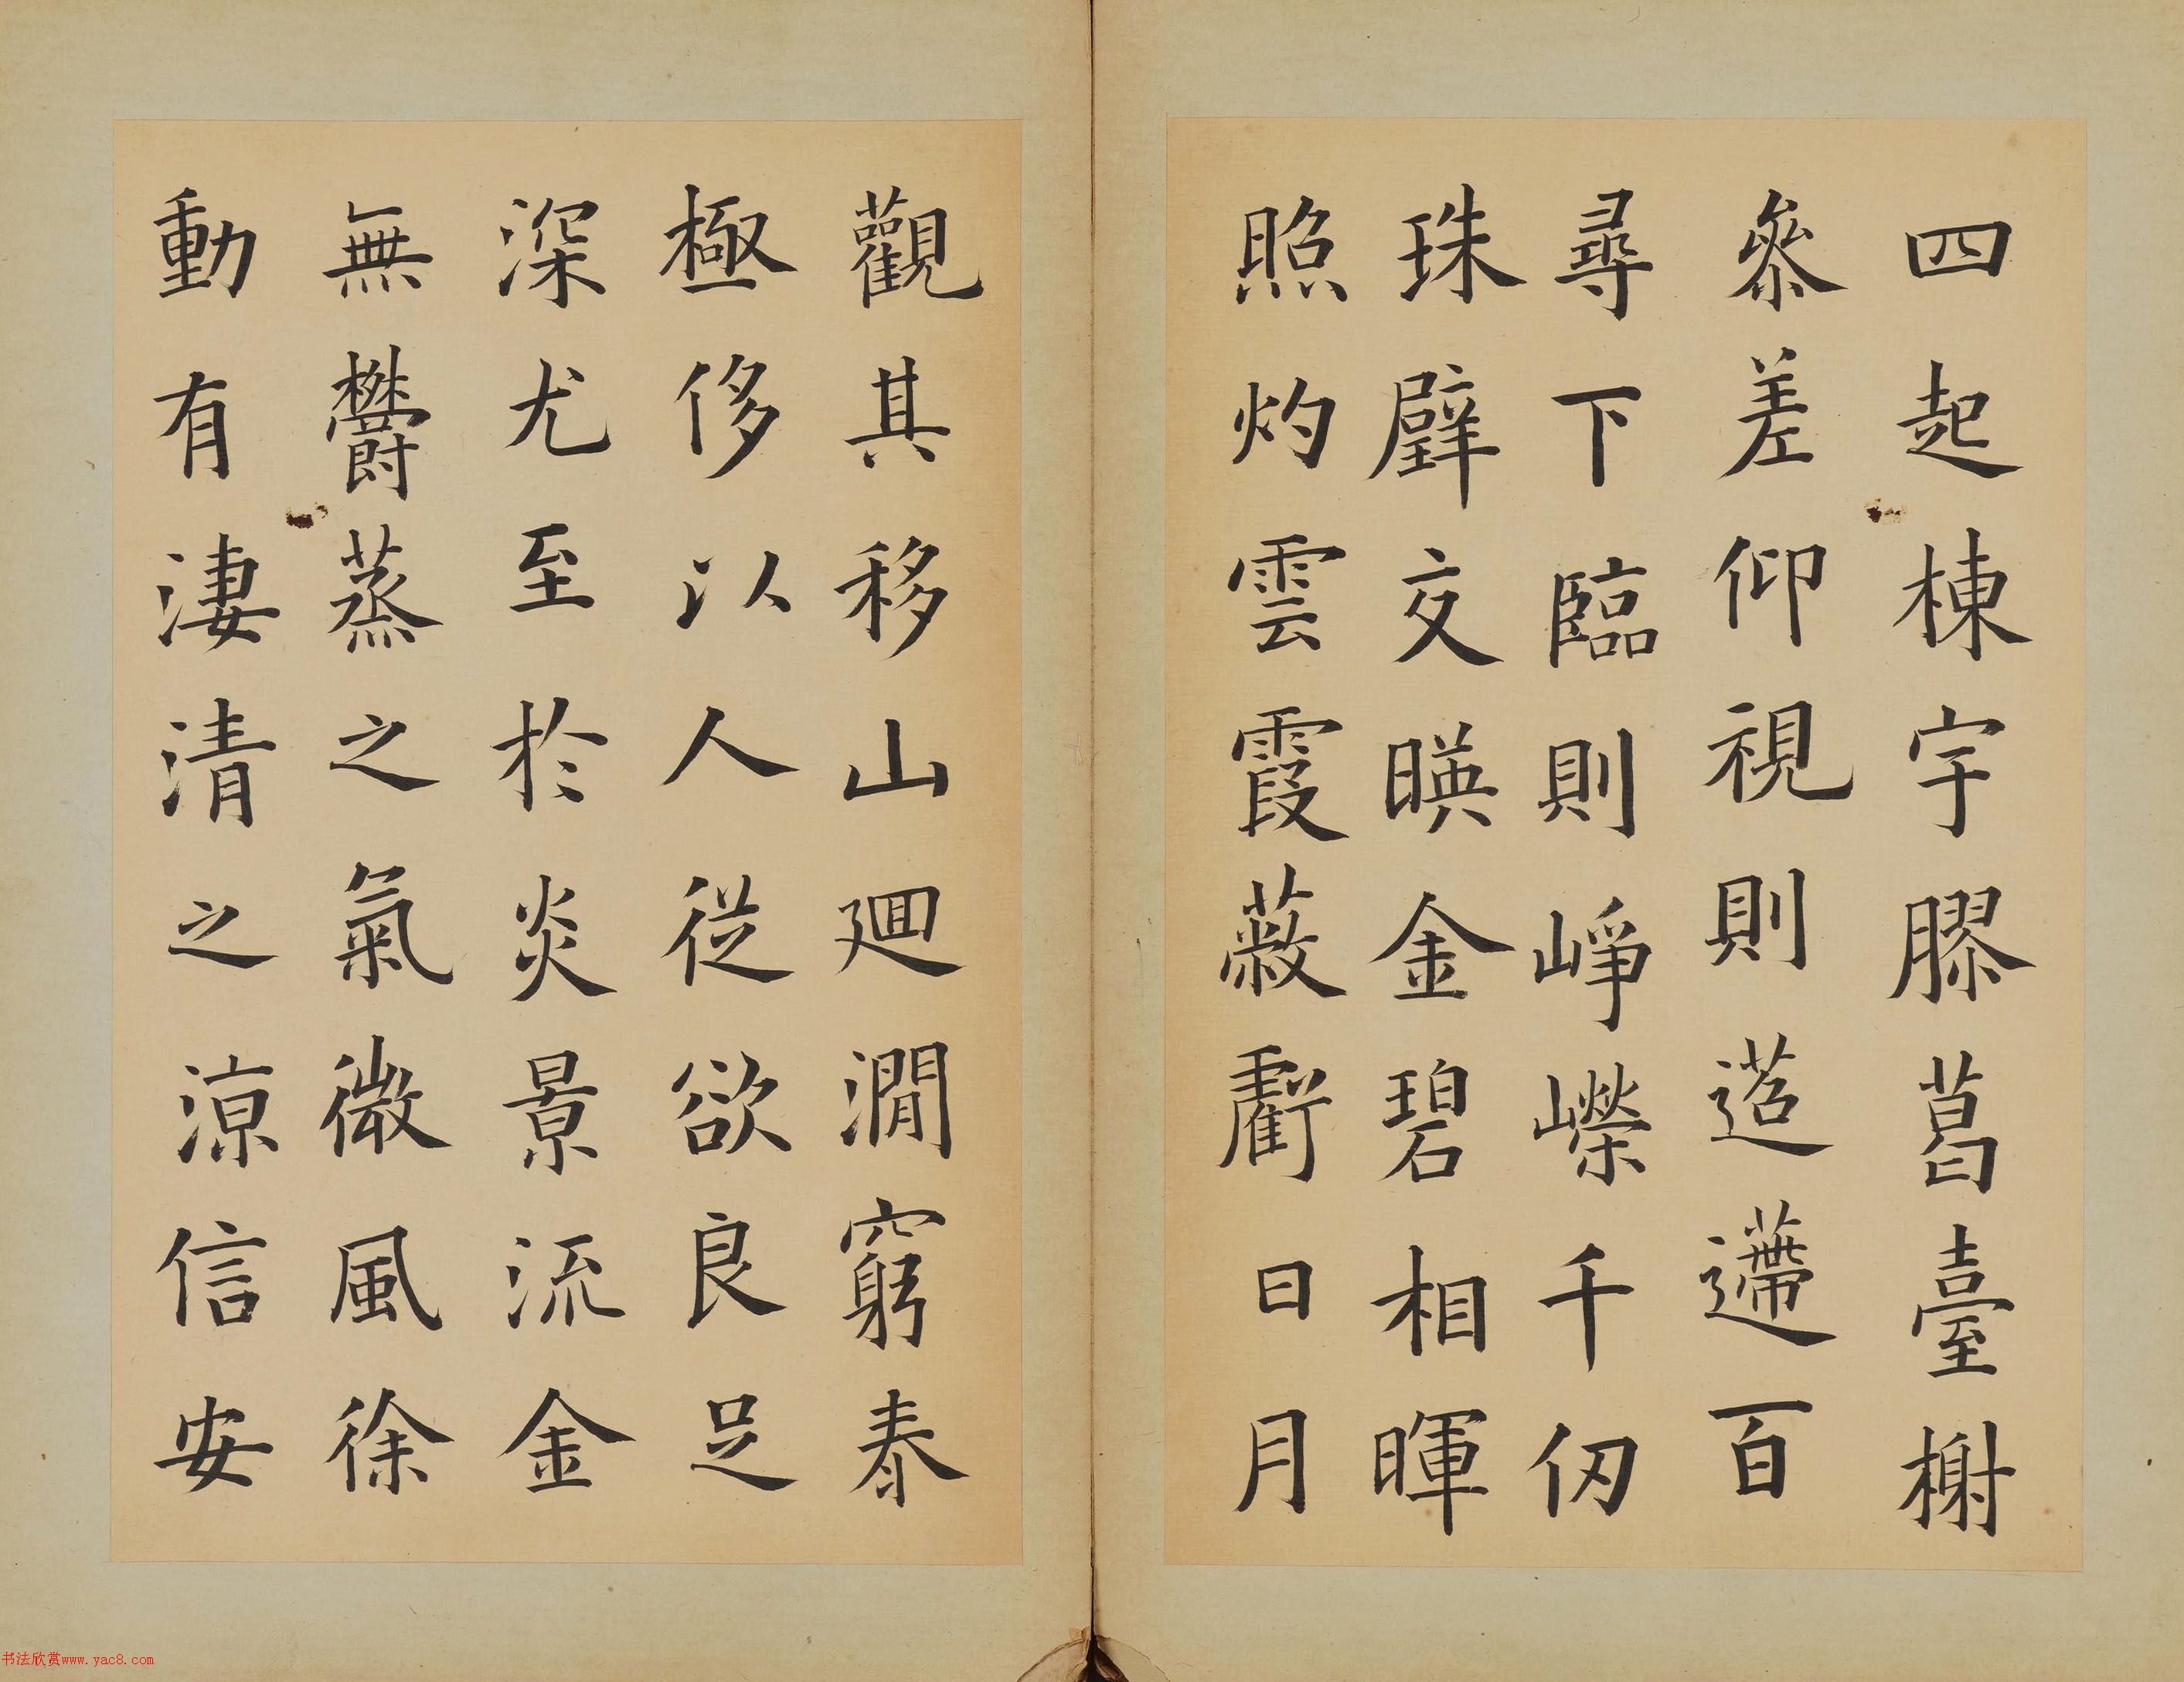 四起棟宇膠葛臺榭
叅差仰視則迢遰百
尋下臨則崢嶸千仞
珠璧交暎金碧相暉
照灼雲霞蔽虧日月
觀其移山迴澗窮泰
極侈以人從欲良足
深尤至於炎景流金
無欝蒸之氣微風徐
動有淒清之涼信安
书法欣赏www.yac8.com